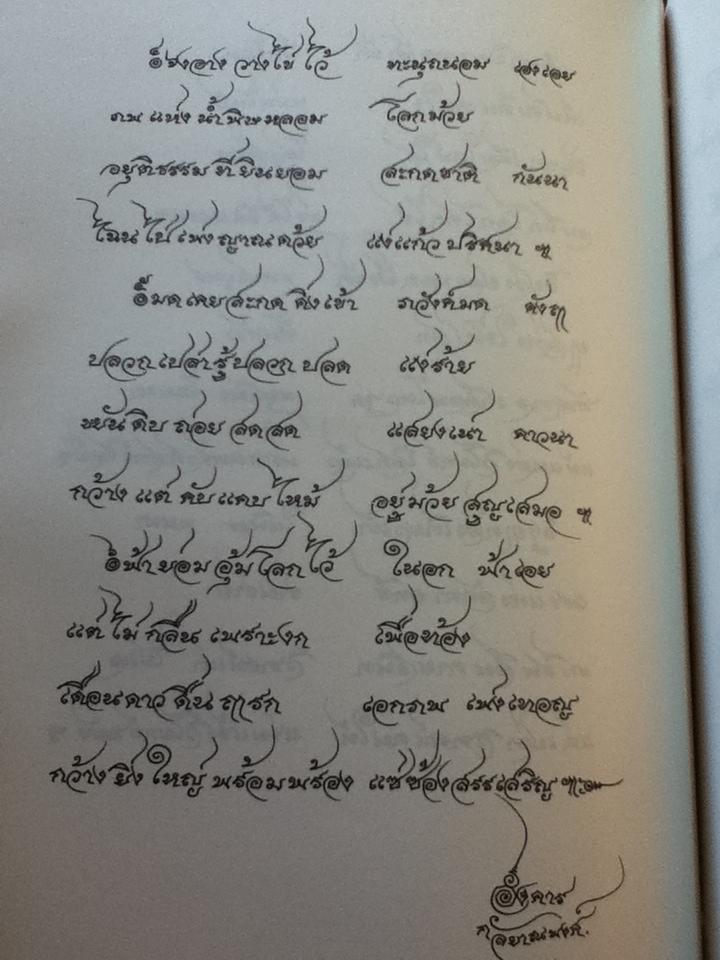 ๏ ช่างอาจ วางไข่ไว้ ทะนุถนอม เองเอย
ภพ แห่ง น้ำพิษหลอม โลกม้วย
อยุติธรรม ที่ยินยอม สะกดชาติ กันนา
ไฉนไป่ แห่ง ญาณด้วย แต่งแก้ว ปริศนา ฯ
๏ มดเคยสะกด คิ่งเข้า ภวังค์มด
ปลวกเปล่ารู้ปลวก ปลด แต่งร้าย
หยันดิบ ถ่อย สดสด แสยงเน่า ดาวนา
กว้าง แต่ คับแคบไหม้ อยู่ม้วย สูญเสมอ ฯ
๏ ฟ้าย่อม อุ้มโลกไว้ ในอก ฟ้าเอย
แต่ไม่ กลืน เพราะงก เพื่อท้อง
เดือนดาวดื่น ฤารก เอกภพ แห่งเทอญ
กว้าง ยิ่งใหญ่ พร้อมพร้อง แซ่ซ้องสรรเสริญ ฯะ๛
อังคาร
กัลยาณพงศ์.